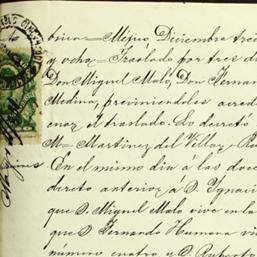 brica = México, Diciembre tre
y ocho = Traslado por tres d
Don Miguel Malo, Don Fernan
Medina, previniendoles acred
enaz el traslado. Lo decretó
M = Martinez del Villar = R
En el mismo dia á las doc
decreto anterior á D. Ignaci
que D. Miguel Malo vive en la
que D. Fernando Humana vi
número cuatro y D. Ruperto